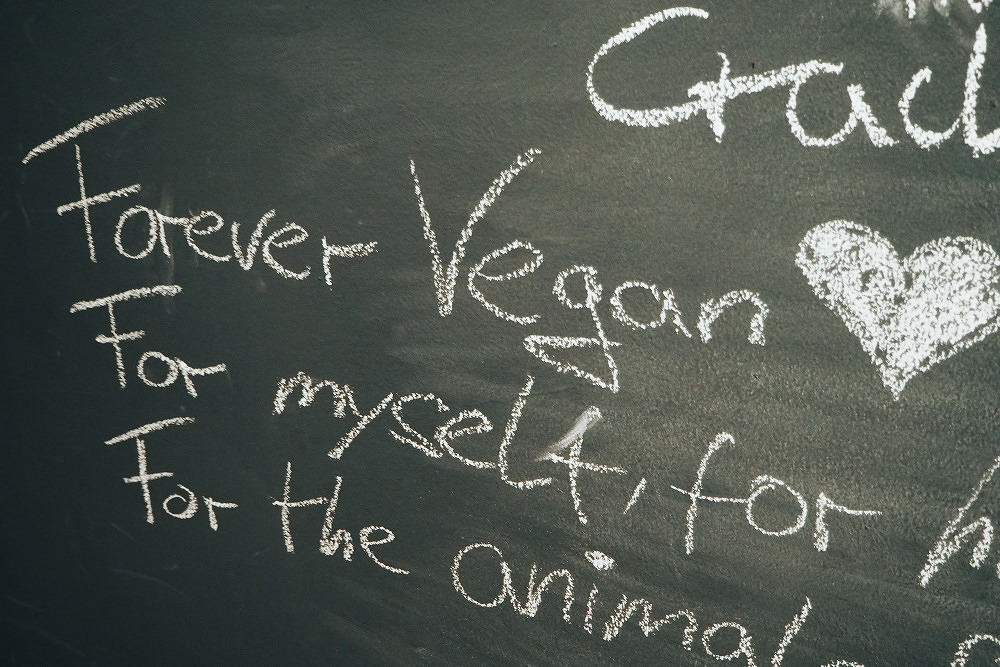 Forever Vegan
For myself, for
For the animal